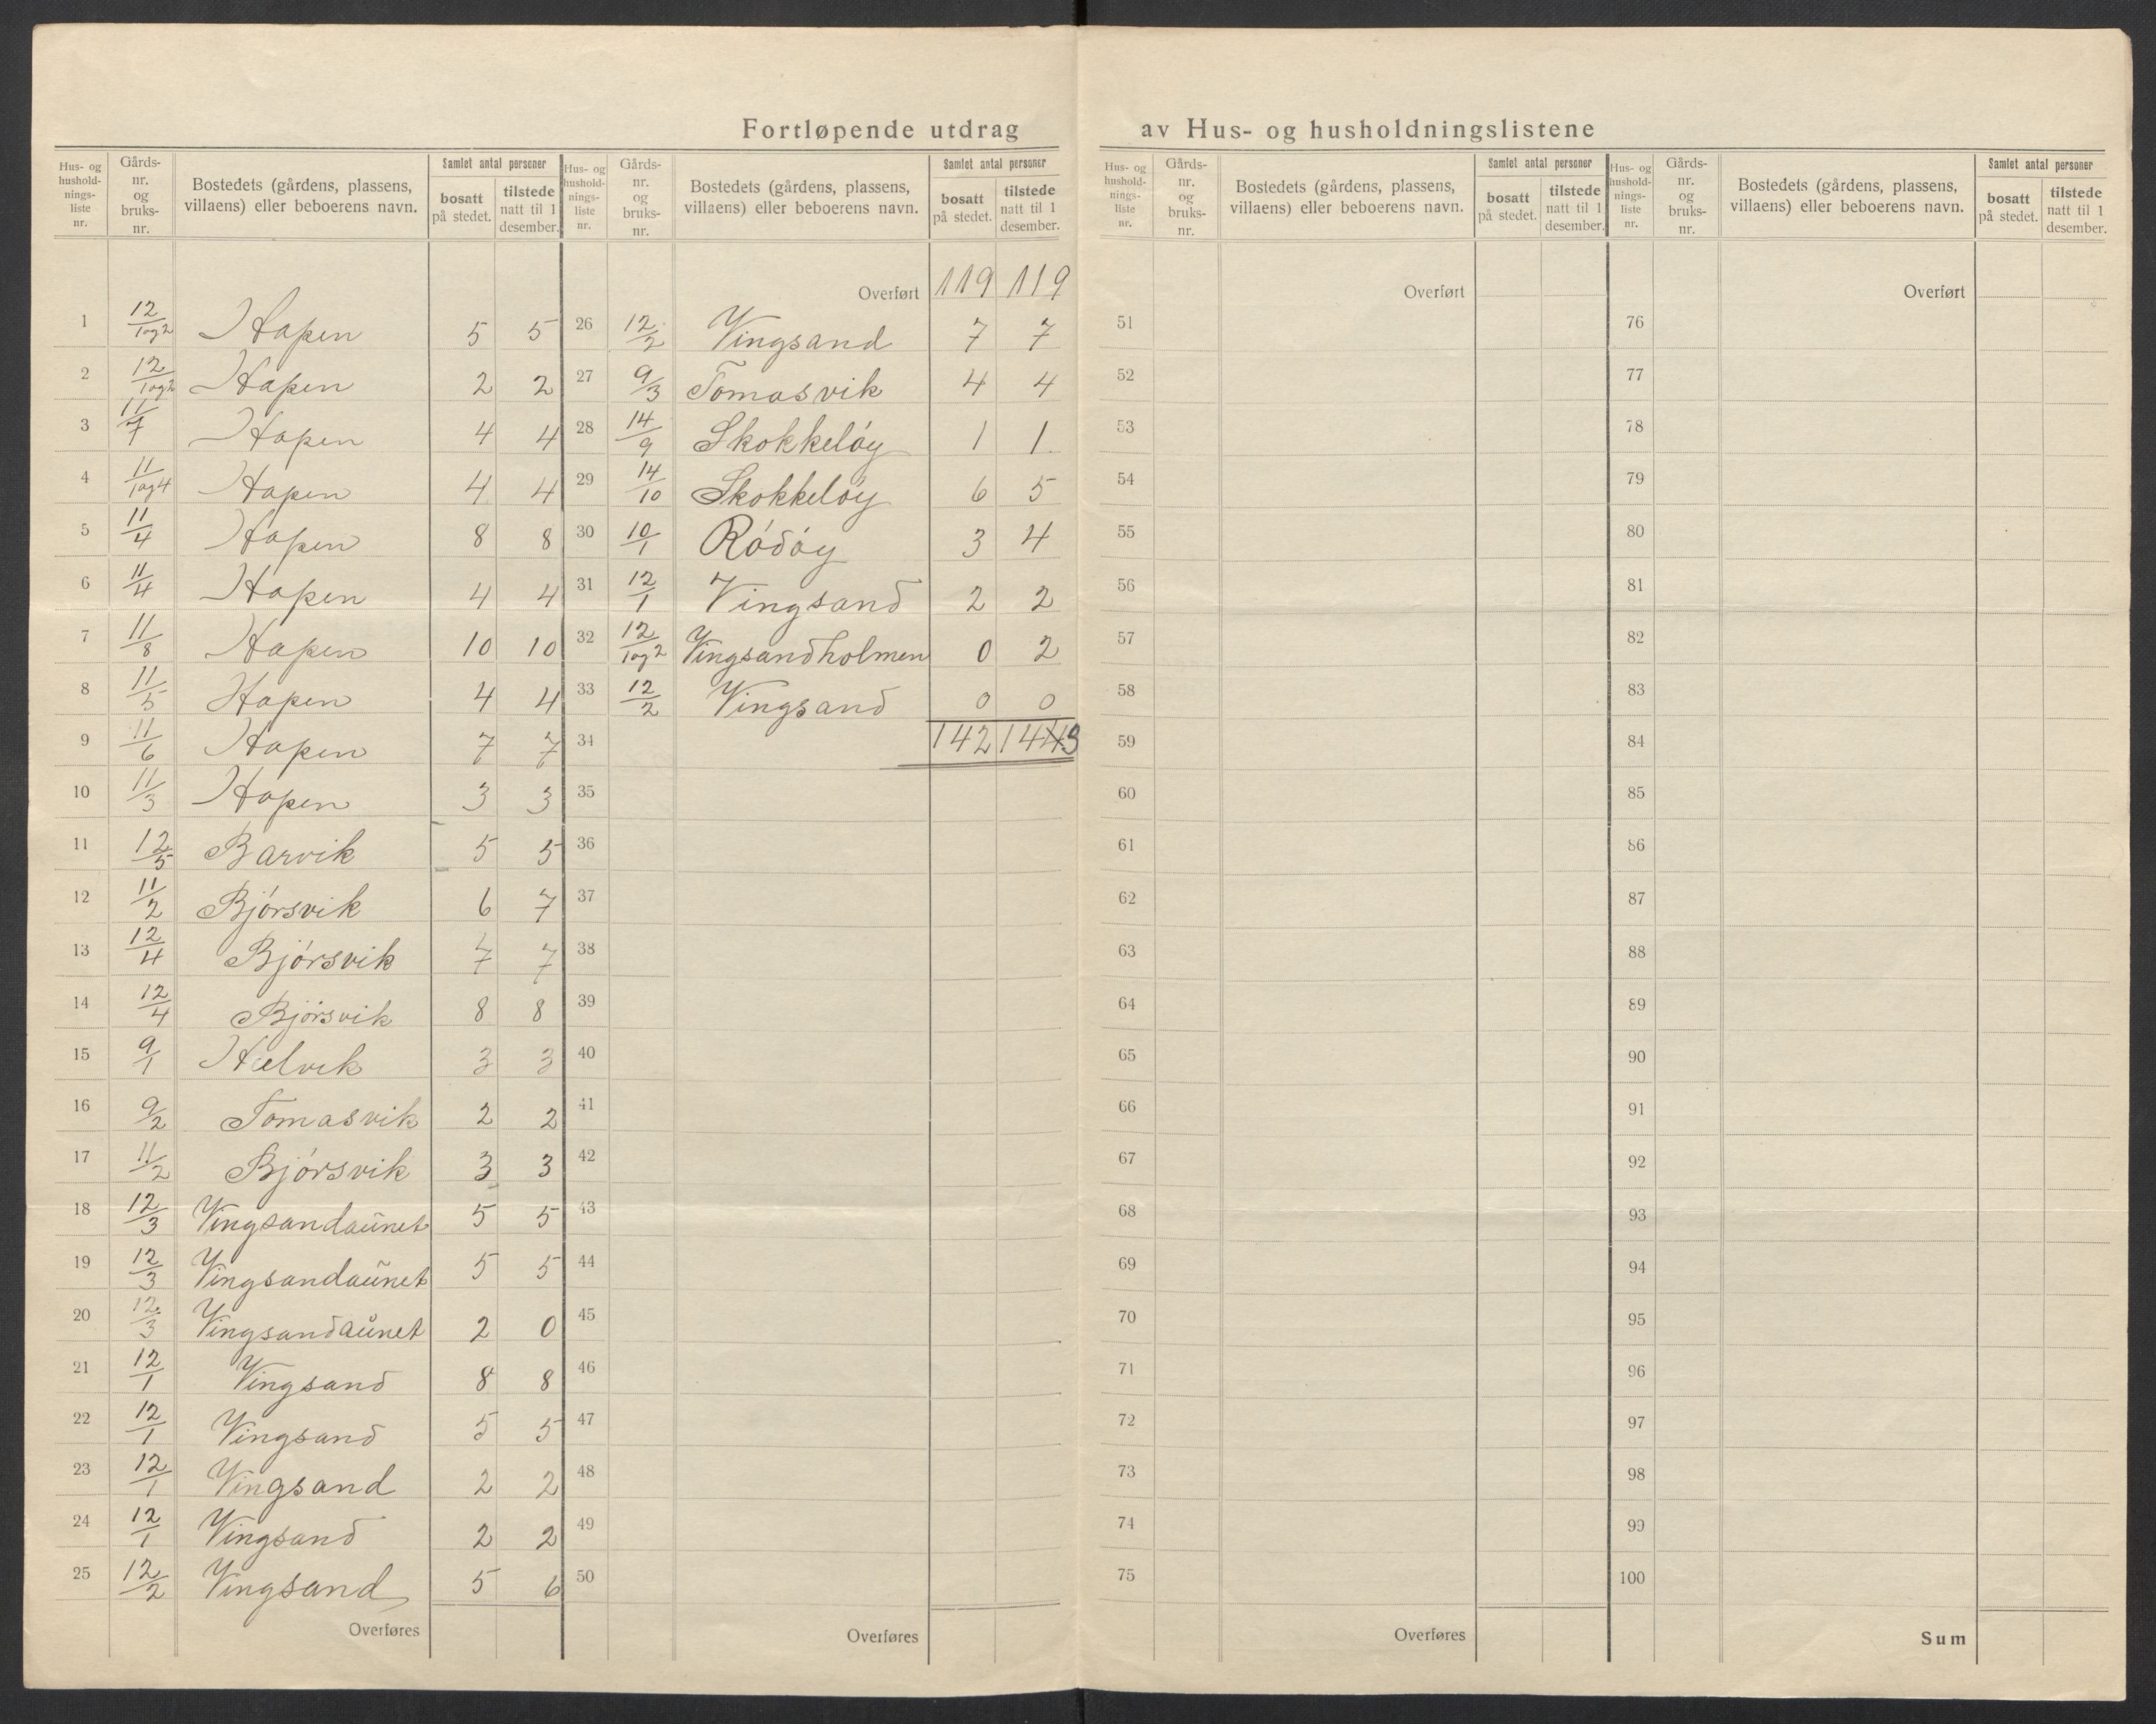 Fortløpende utdrag av Hus- og husholdningslistene
Hus- og husholdnings-liste nr. | Gårds-nr. og bruks-nr. | Bostedets (gårdens, plassens, villaens) eller beboerens navn. | Samlet antal personer | bosatt på stedet. | tilstede natt til 1 desember.
1 12/1og2 Hopen 5 5
2 12/1og2 Hopen 2 2
3 11/7 Hopen 4 4
4 11/1og4 Hopen 4 4
5 11/4 Hopen 8 8
6 11/4 Hopen 4 4
7 11/8 Hopen 10 10
8 11/5 Hopen 4 4
9 11/6 Hopen 7 7
10 11/3 Hopen 3 3
11 12/5 Barvik 5 5
12 11/2 Bjórsvik 6 7
13 12/4 Bjórsvik 7 7
14 12/4 Bjórsvik 8 8
15 9/1 Helvik 3 3
16 9/2 Tomasvik 2 2
17 11/2 Bjórsvik 3 3
18 12/3 Vingsandaunet 5 5
19 12/3 Vingsandaunet 5 5
20 12/3 Vingsandaunet 2 0
21 12/1 Vingsand 8 8
22 12/1 Vingsand 5 5
23 12/1 Vingsand 2 2
24 12/1 Vingsand 2 2
25 12/2 Vingsand 5 6
Overføres
Hus- og husholdnings-liste nr. | Gårds-nr. og bruks-nr. | Bostedets (gårdens, plassens, villaens) eller beboerens navn. | Samlet antal personer | bosatt på stedet. | tilstede natt til 1 desember.
Overført 119 119
26 12/2 Vingsand 7 7
27 9/3 Tomasvik 4 4
28 14/9 Skokkelóy 1 1
29 14/10 Skokkelóy 6 5
30 10/1 Ródóy 3 4
31 12/1 Vingsand 2 2
32 12/1og2 Vingsandholmen 0 2
33 12/2 Vingsand 0 0
34 142 1443
35
36
37
38
39
40
41
42
43
44
45
46
47
48
49
50
Overføres
Hus- og husholdnings-liste nr. | Gårds-nr. og bruks-nr. | Bostedets (gårdens, plassens, villaens) eller beboerens navn. | Samlet antal personer | bosatt på stedet. | tilstede natt til 1 desember.
Overført
51
52
53
54
55
56
57
58
59
60
61
62
63
64
65
66
67
68
69
70
71
72
73
74
75
Overføres
Hus- og husholdnings-liste nr. | Gårds-nr. og bruks-nr. | Bostedets (gårdens, plassens, villaens) eller beboerens navn. | Samlet antal personer | bosatt på stedet. | tilstede natt til 1 desember.
Overført
76
77
78
79
80
81
82
83
84
85
86
87
88
89
90
91
92
93
94
95
96
97
98
99
100
Sum